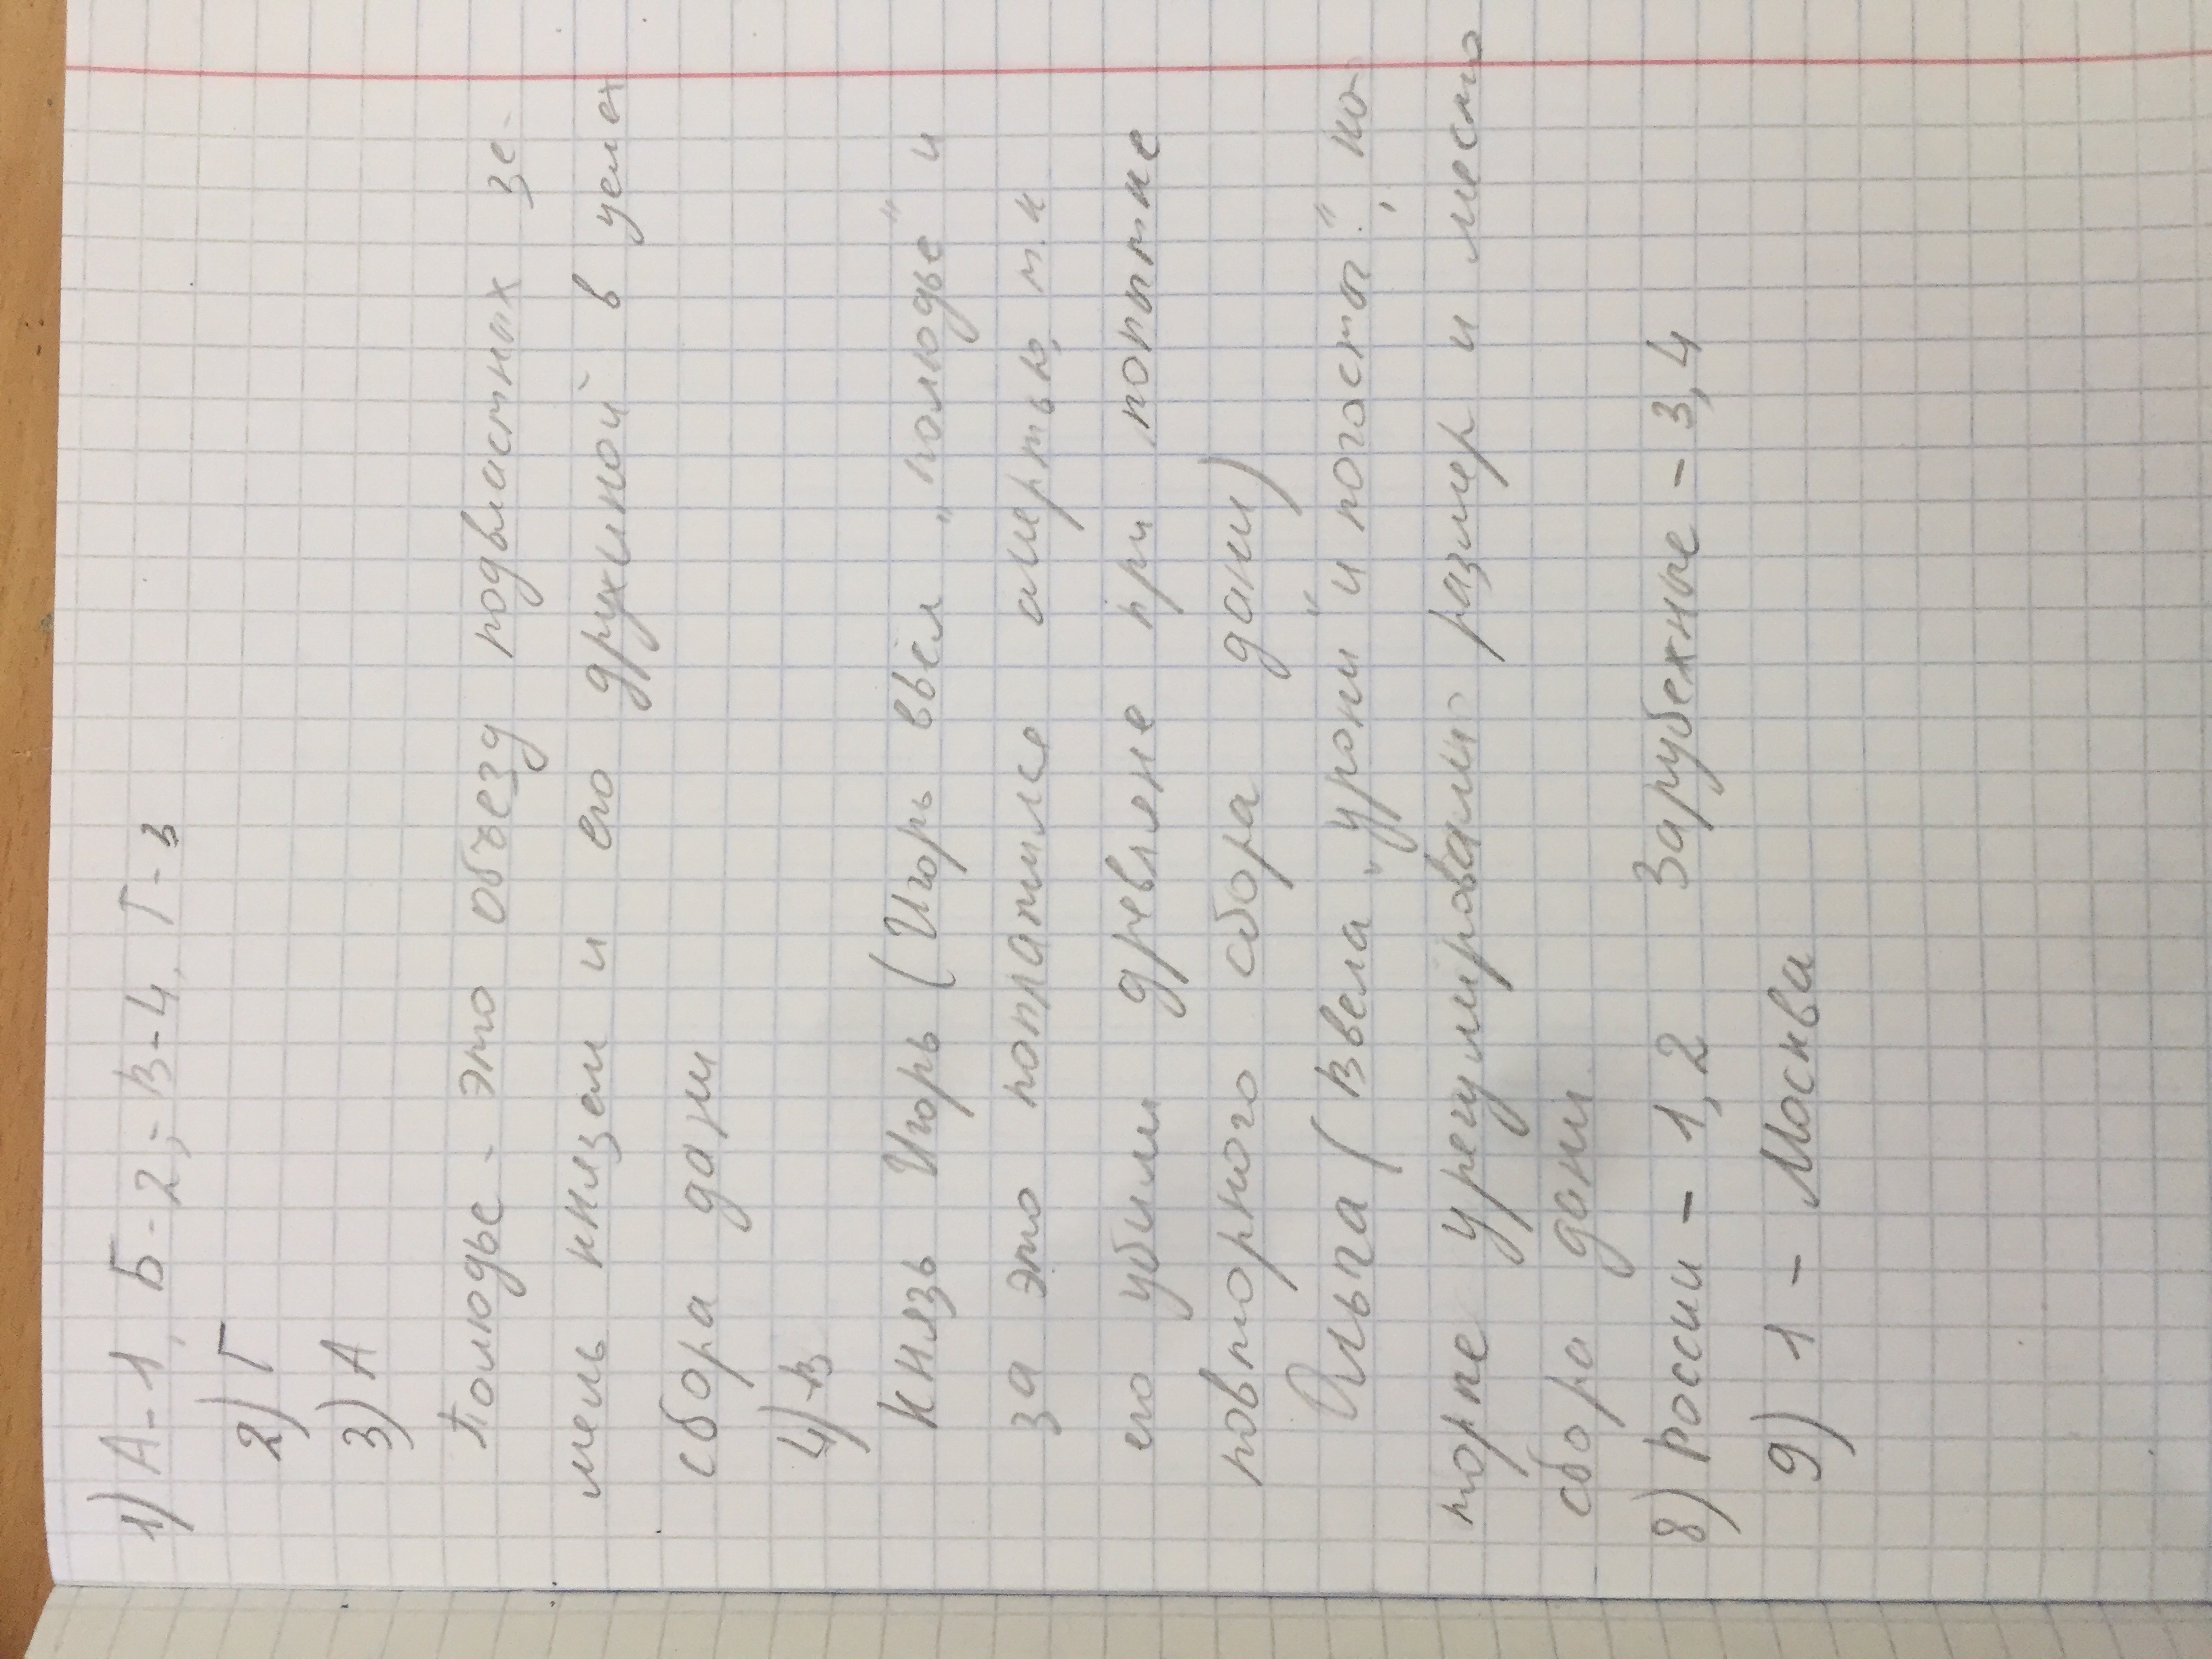 1) А-1, Б-2, -В-4, Г-3
2) Г
3) А
Полюдье - это объезд подвластных зе-
мель князем и его дружиной в целях
сбора дани
4) В
Князь Игорь (Игорь ввёл „полюдье" и
за это поплатился смертью, т.к
его убили древляне при попытке
повторного сбора дани)
Ольга (ввела „уроки" и погосты", ко-
торые урегулировали размер и место
сбора дани
8) России - 1, 2 Зарубежные - 3, 4
9) 1 - Москва